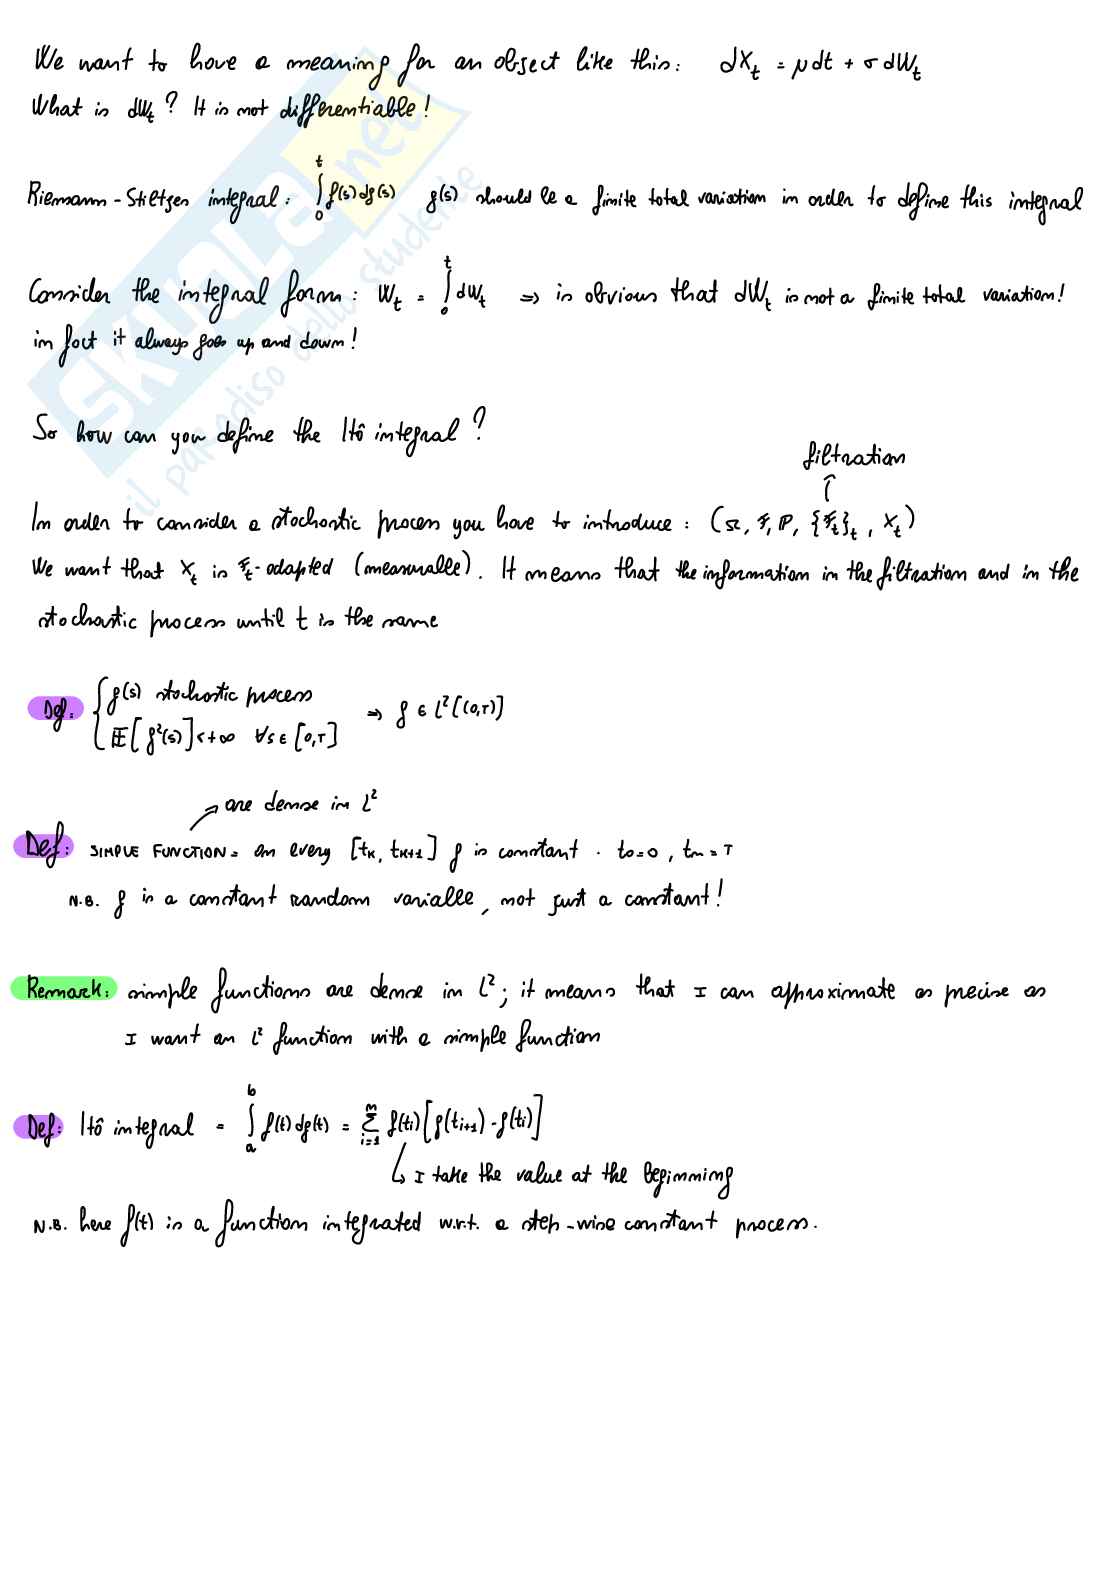 We want to have a meaning for an object like this: dX_t = μdt + σdW_t
What is dW_t? It is not differentiable!
Riemann-Stieltjes integral: ∫₀ᵗ f(s)dg(s) g(s) should be a finite total variation in order to define this integral
Consider the integral form: W_t = ∫₀ᵗ dW_t ⇒ is obvious that dW_t is not a finite total variation!
in fact it always goes up and down!
So how can you define the Itô integral?
filtration
In order to consider a stochastic process you have to introduce: (Ω, F, P, {F_t}_t, X_t)
We want that X_t is F_t-adapted (measurable). It means that the information in the filtration and in the
stochastic process until t is the same
Def: { g(s) stochastic process
E[g²(s)] < +∞ ∀s ∈ [0,T] ⇒ g ∈ L²[(0,T)]
→ are dense in L²
Def: SIMPLE FUNCTION = on every [t_k, t_k+1] g is constant. t₀=0, t_n=T
N.B. g is a constant random variable, not just a constant!
Remark: simple functions are dense in L²; it means that I can approximate as precise as
I want an L² function with a simple function
Def: Itô integral = ∫ₐᵇ f(t)dg(t) = Σ_{i=1}^n f(t_i)[g(t_{i+1}) - g(t_i)]
↳ I take the value at the beginning
N.B. here f(t) is a function integrated w.r.t. a step-wise constant process.
SKUOLA.net
il paradiso dello studente